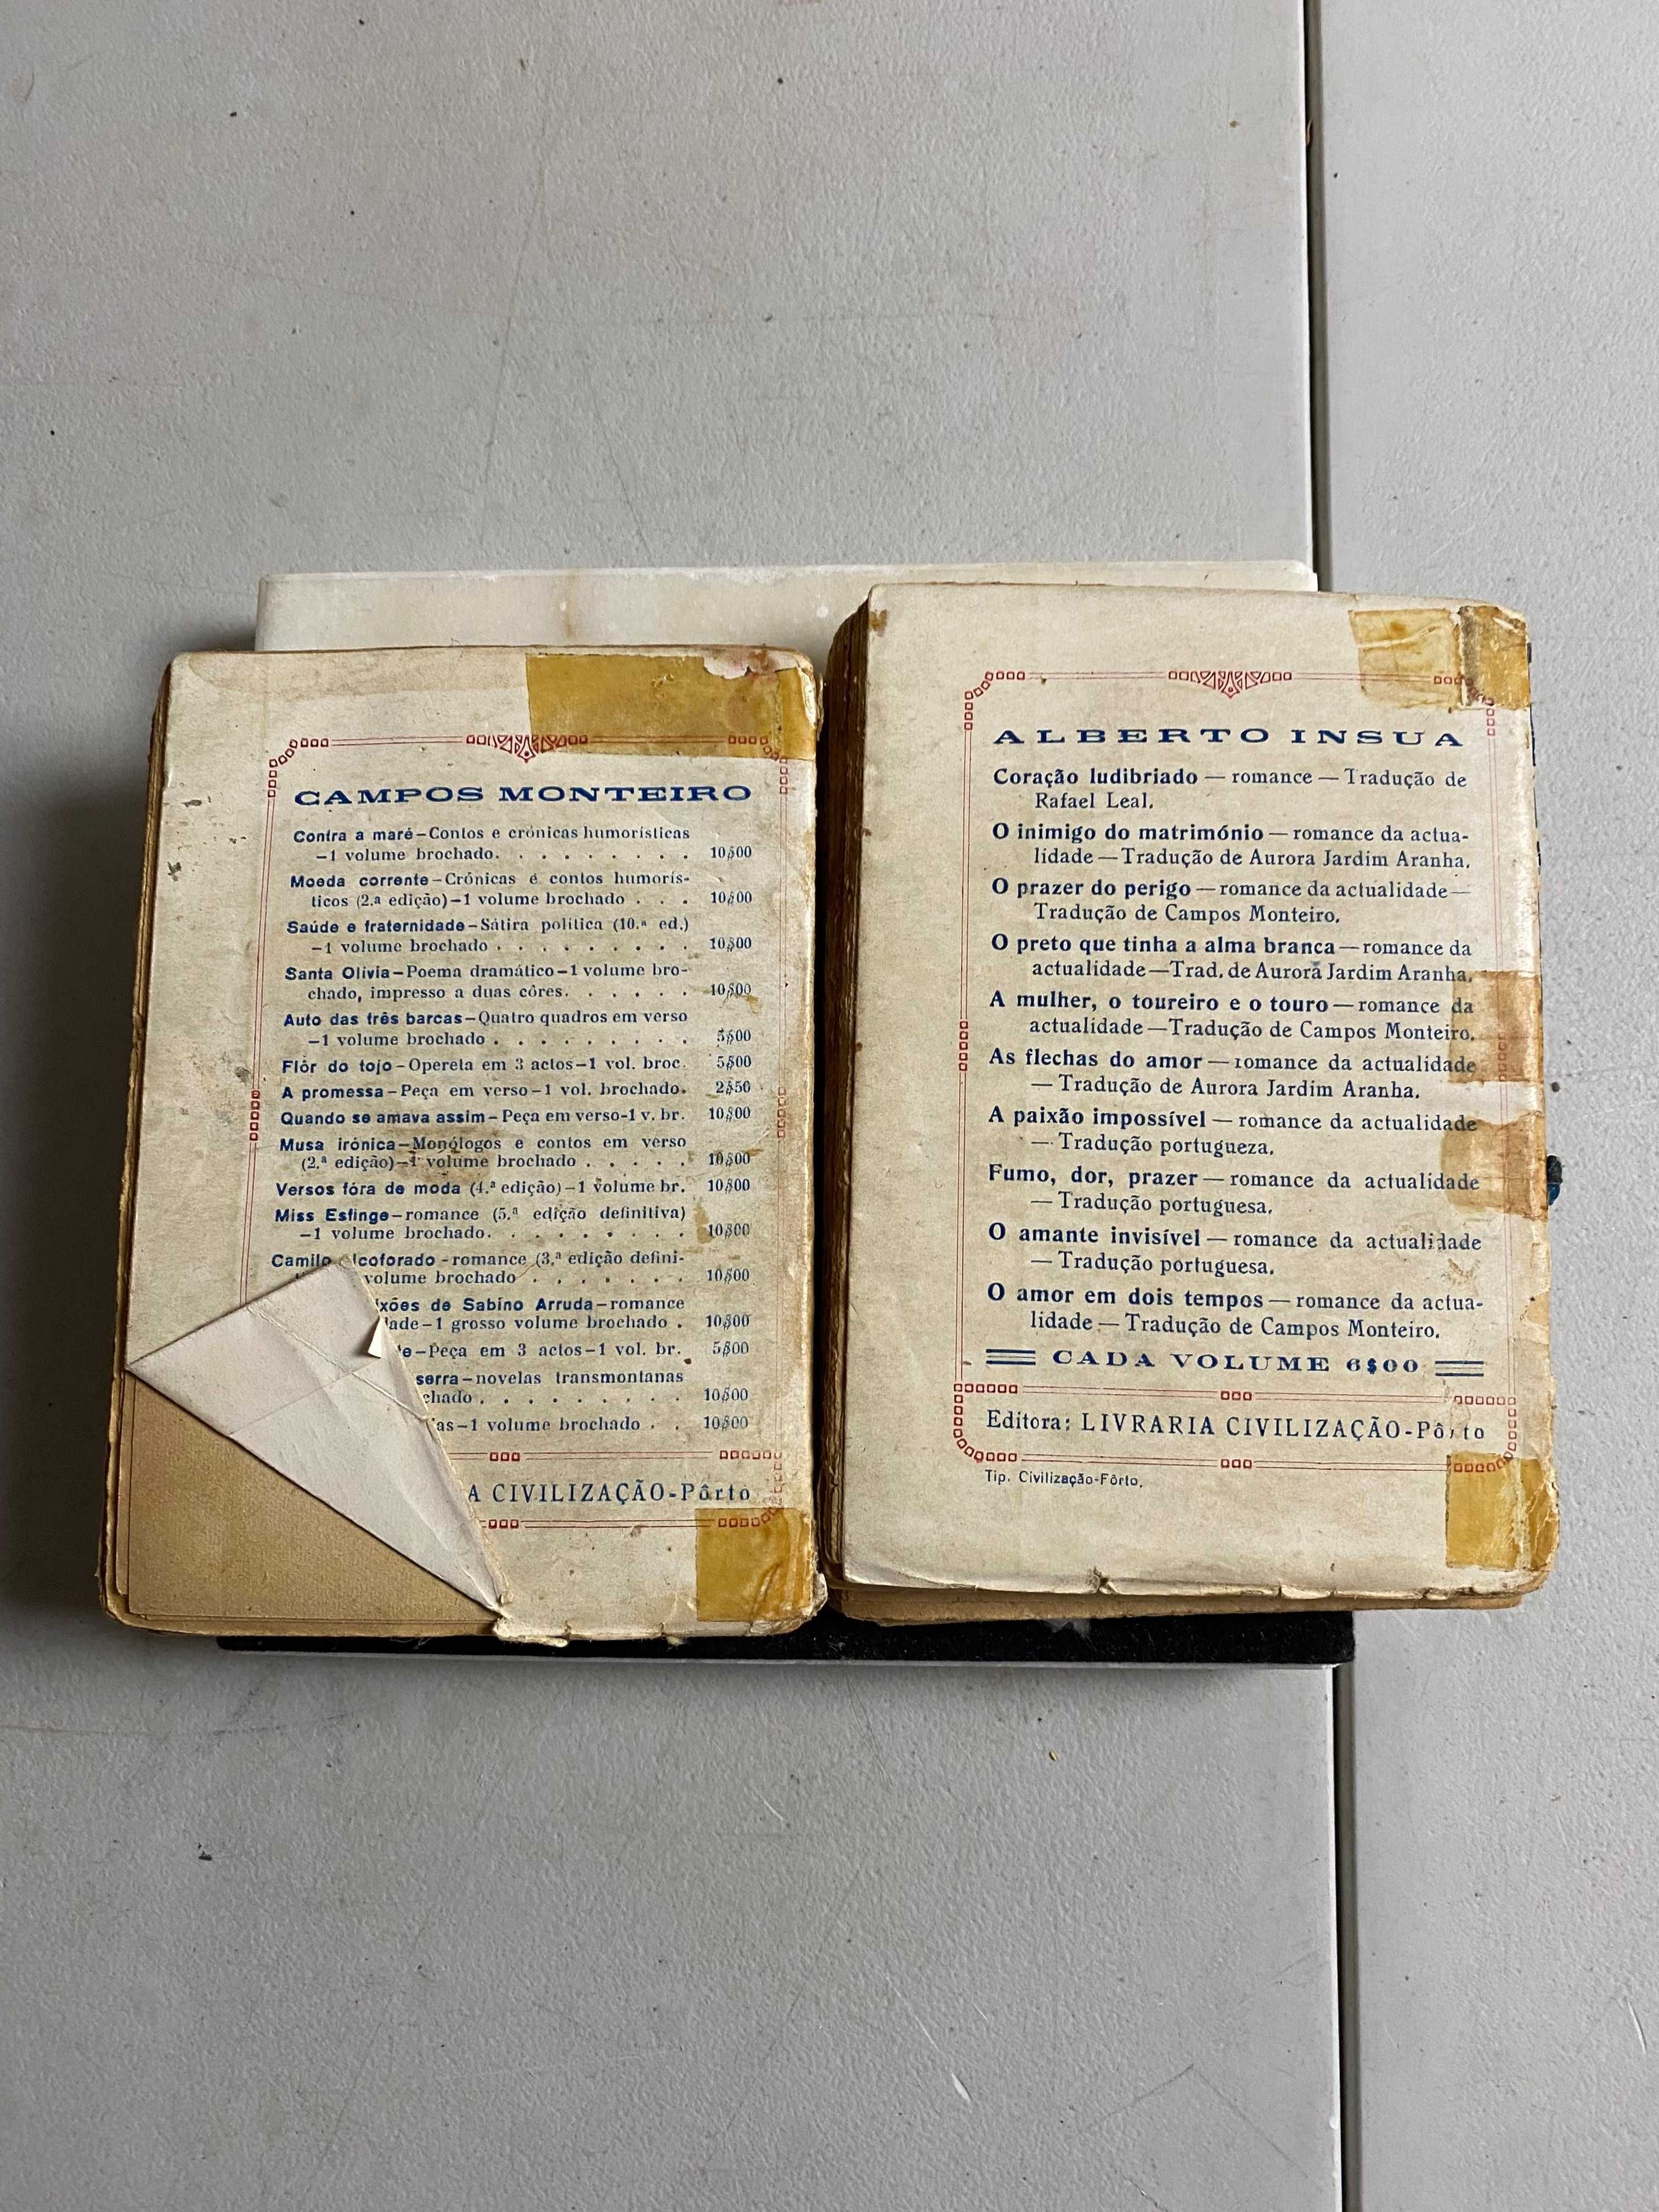 CAMPOS MONTEIRO
Contra a maré–Contos e crónicas humorísticas
–1 volume brochado. . . . . . . . . 10$00
Moeda corrente–Crónicas e contos humorís-
ticos (2.ª edição)–1 volume brochado . . . 10$00
Saúde e fraternidade–Sátira política (10.ª ed.)
–1 volume brochado . . . . . . . . . 10$00
Santa Olívia–Poema dramático–1 volume bro-
chado, impresso a duas côres. . . . . . 10$00
Auto das três barcas–Quatro quadros em verso
–1 volume brochado . . . . . . . . . 5$00
Flôr do tojo–Opereta em 3 actos–1 vol. broc. 5$00
A promessa–Peça em verso–1 vol. brochado. 2$50
Quando se amava assim–Peça em verso-1 v. br. 10$00
Musa irónica–Monólogos e contos em verso
(2.ª edição)–1 volume brochado . . . . . 10$00
Versos fóra de moda (4.ª edição)–1 volume br. 10$00
Miss Esfinge–romance (5.ª edição definitiva)
–1 volume brochado. . . . . . . . . 10$00
Camilo lcoforado -romance (3.ª edição defini-
volume brochado . . . . . . . 10$00
ixões de Sabino Arruda–romance
dade–1 grosso volume brochado . 10$00
de–Peça em 3 actos–1 vol. br. 5$00
serra–novelas transmontanas
chado . . . . . . . . 10$00
ias–1 volume brochado . . 10$00
A CIVILIZAÇÃO-Pôrto
ALBERTO INSUA
Coração ludibriado — romance — Tradução de
Rafael Leal.
O inimigo do matrimónio — romance da actua-
lidade — Tradução de Aurora Jardim Aranha.
O prazer do perigo — romance da actualidade —
Tradução de Campos Monteiro.
O preto que tinha a alma branca — romance da
actualidade — Trad. de Aurora Jardim Aranha.
A mulher, o toureiro e o touro — romance da
actualidade — Tradução de Campos Monteiro.
As flechas do amor — romance da actualidade
— Tradução de Aurora Jardim Aranha.
A paixão impossível — romance da actualidade
— Tradução portugueza.
Fumo, dor, prazer — romance da actualidade
— Tradução portuguesa.
O amante invisível — romance da actualidade
— Tradução portuguesa.
O amor em dois tempos — romance da actua-
lidade — Tradução de Campos Monteiro.
CADA VOLUME 6$00
Editora: LIVRARIA CIVILIZAÇÃO-Pôrto
Tip. Civilização-Pôrto.